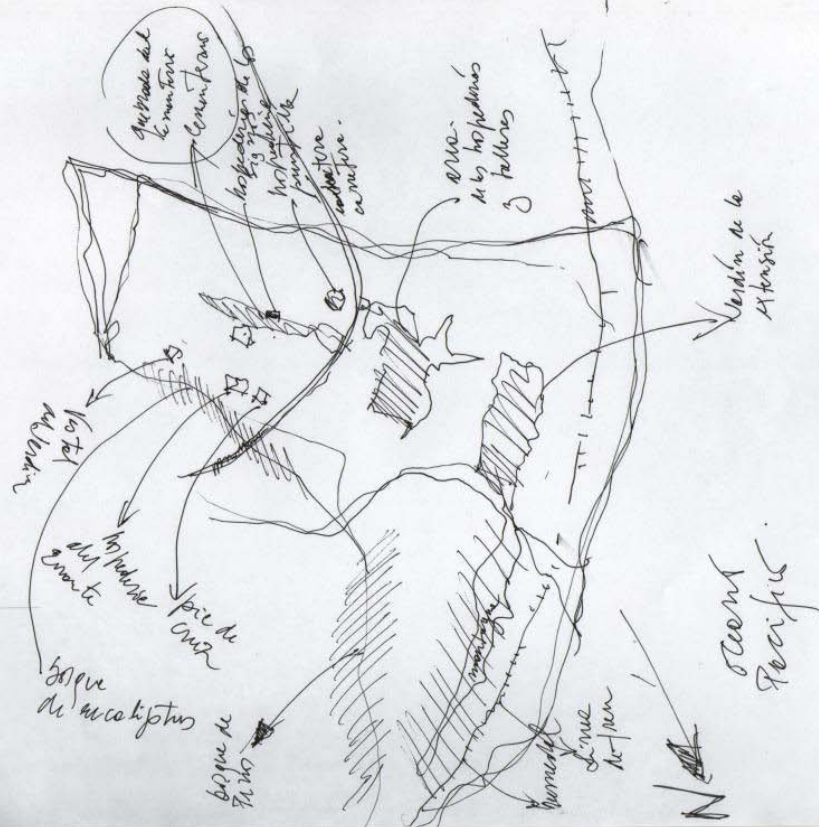 quebrada del
cementerio
Cementerio
hospedería
carretera.
area.
de las hospederías
y talleres
Jardín de la
extensión
Vestal
del Jardín
hospedería
del
errante
pie de
cruz
bosque
de eucaliptus
bosque de
Pinos
mantagua
humedal
Linea
de tren
Oceano
Pacifico.
N